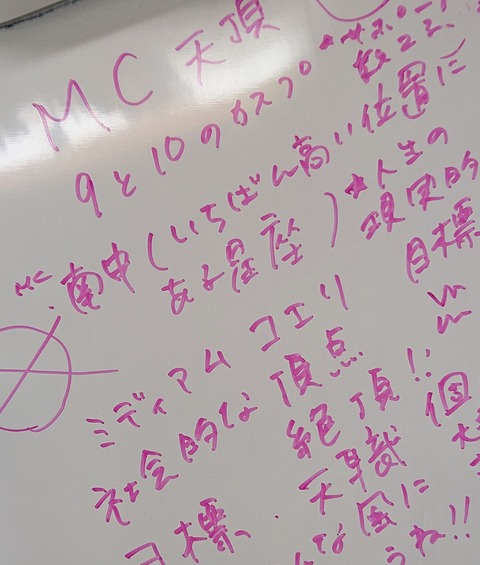 MC 天頂
9と10のカスプ
MC
南中(いちばん高い位置に
ある星座)
*人生の
現実的
目標
ミディアム コエリ
社会的な 頂点
絶頂!!
目標.天
個
な風に
うね!!